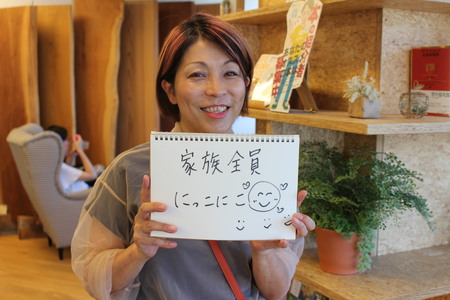 家族全員
にっこにこ